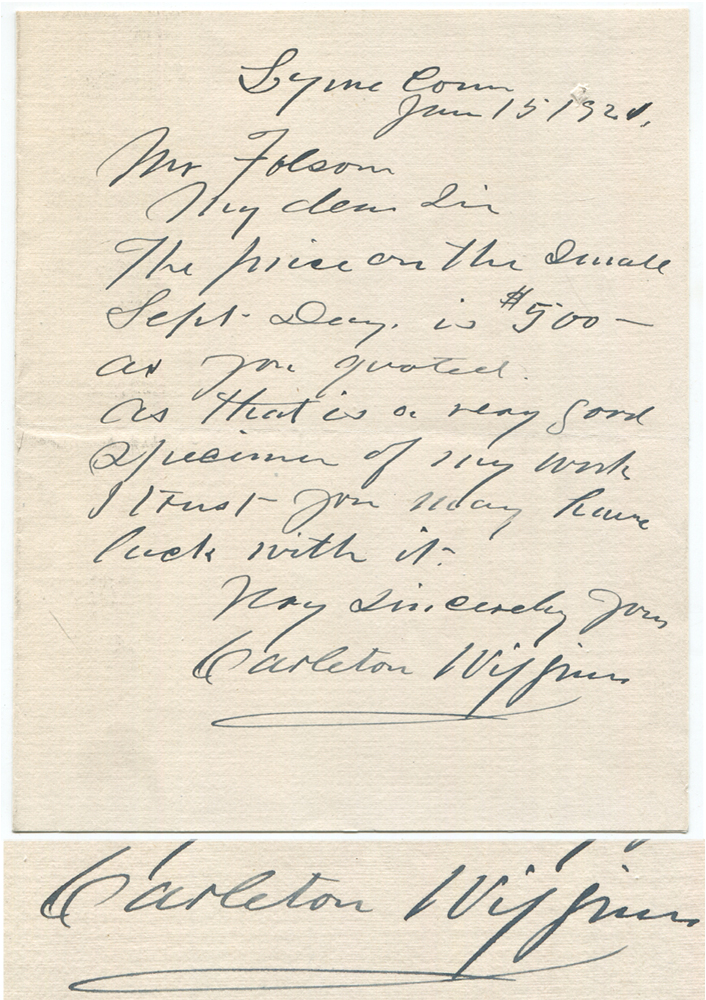 Lyme Conn
Jan 15 1921.
Mr Folsom
My dear Sir
The price on the small
Sept. Day. is $500—
as you quoted.
As that is a very good
specimen of my work
I trust you may have
luck with it.
Very sincerely yours
Carleton Wiggins
Carleton Wiggins